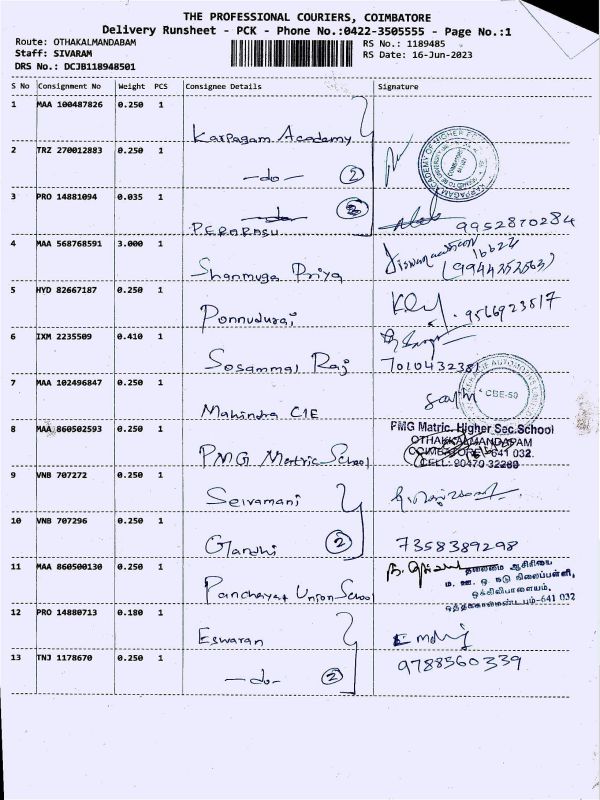 THE PROFESSIONAL COURIERS, COIMBATORE
Delivery Runsheet - PCK - Phone No.:0422-3505555 - Page No.:1
Route: OTHAKALMANDABAM
Staff: SIVARAM
DRS No.: DCJB118948501
RS No.: 1189485
RS Date: 16-Jun-2023
S No Consignment No Weight PCS Consignee Details Signature
1 MAA 100487826 0.250 1 Karpagam Academy
2 TRZ 270012883 0.250 1 -do- 2
3 PRO 14881094 0.035 1 PERARASU 9952870284
4 MAA 568768591 3.000 1 Shanmuga Priya (9944252563)
5 HYD 82667187 0.250 1 Ponnudurai 9566923817
6 IXM 2235509 0.410 1 Sosammal Raj 7010432381
7 MAA 102496847 0.250 1 Mahindra CIE
CBE-50
8 MAA 860502593 0.250 1 PMG Matric School
PMG Matric. Higher Sec.School
OTHAKKALMANDAPAM
COIMBATORE - 641 032.
CELL: 90470 32289
9 VNB 707272 0.250 1 Selvamani
10 VNB 707296 0.250 1 Gandhi 2 7358389298
11 MAA 860500130 0.250 1 Panchayat Union School
தலைமை ஆசிரியை
ம. ஊ. ஒ. நடு நிலைப்பள்ளி,
ஒக்கிலிபாளையம்,
ஒத்தக்கால்மண்டபம்-641 032
12 PRO 14880713 0.180 1 Eswaran
13 TNJ 1178670 0.250 1 -do- 2 9788560339